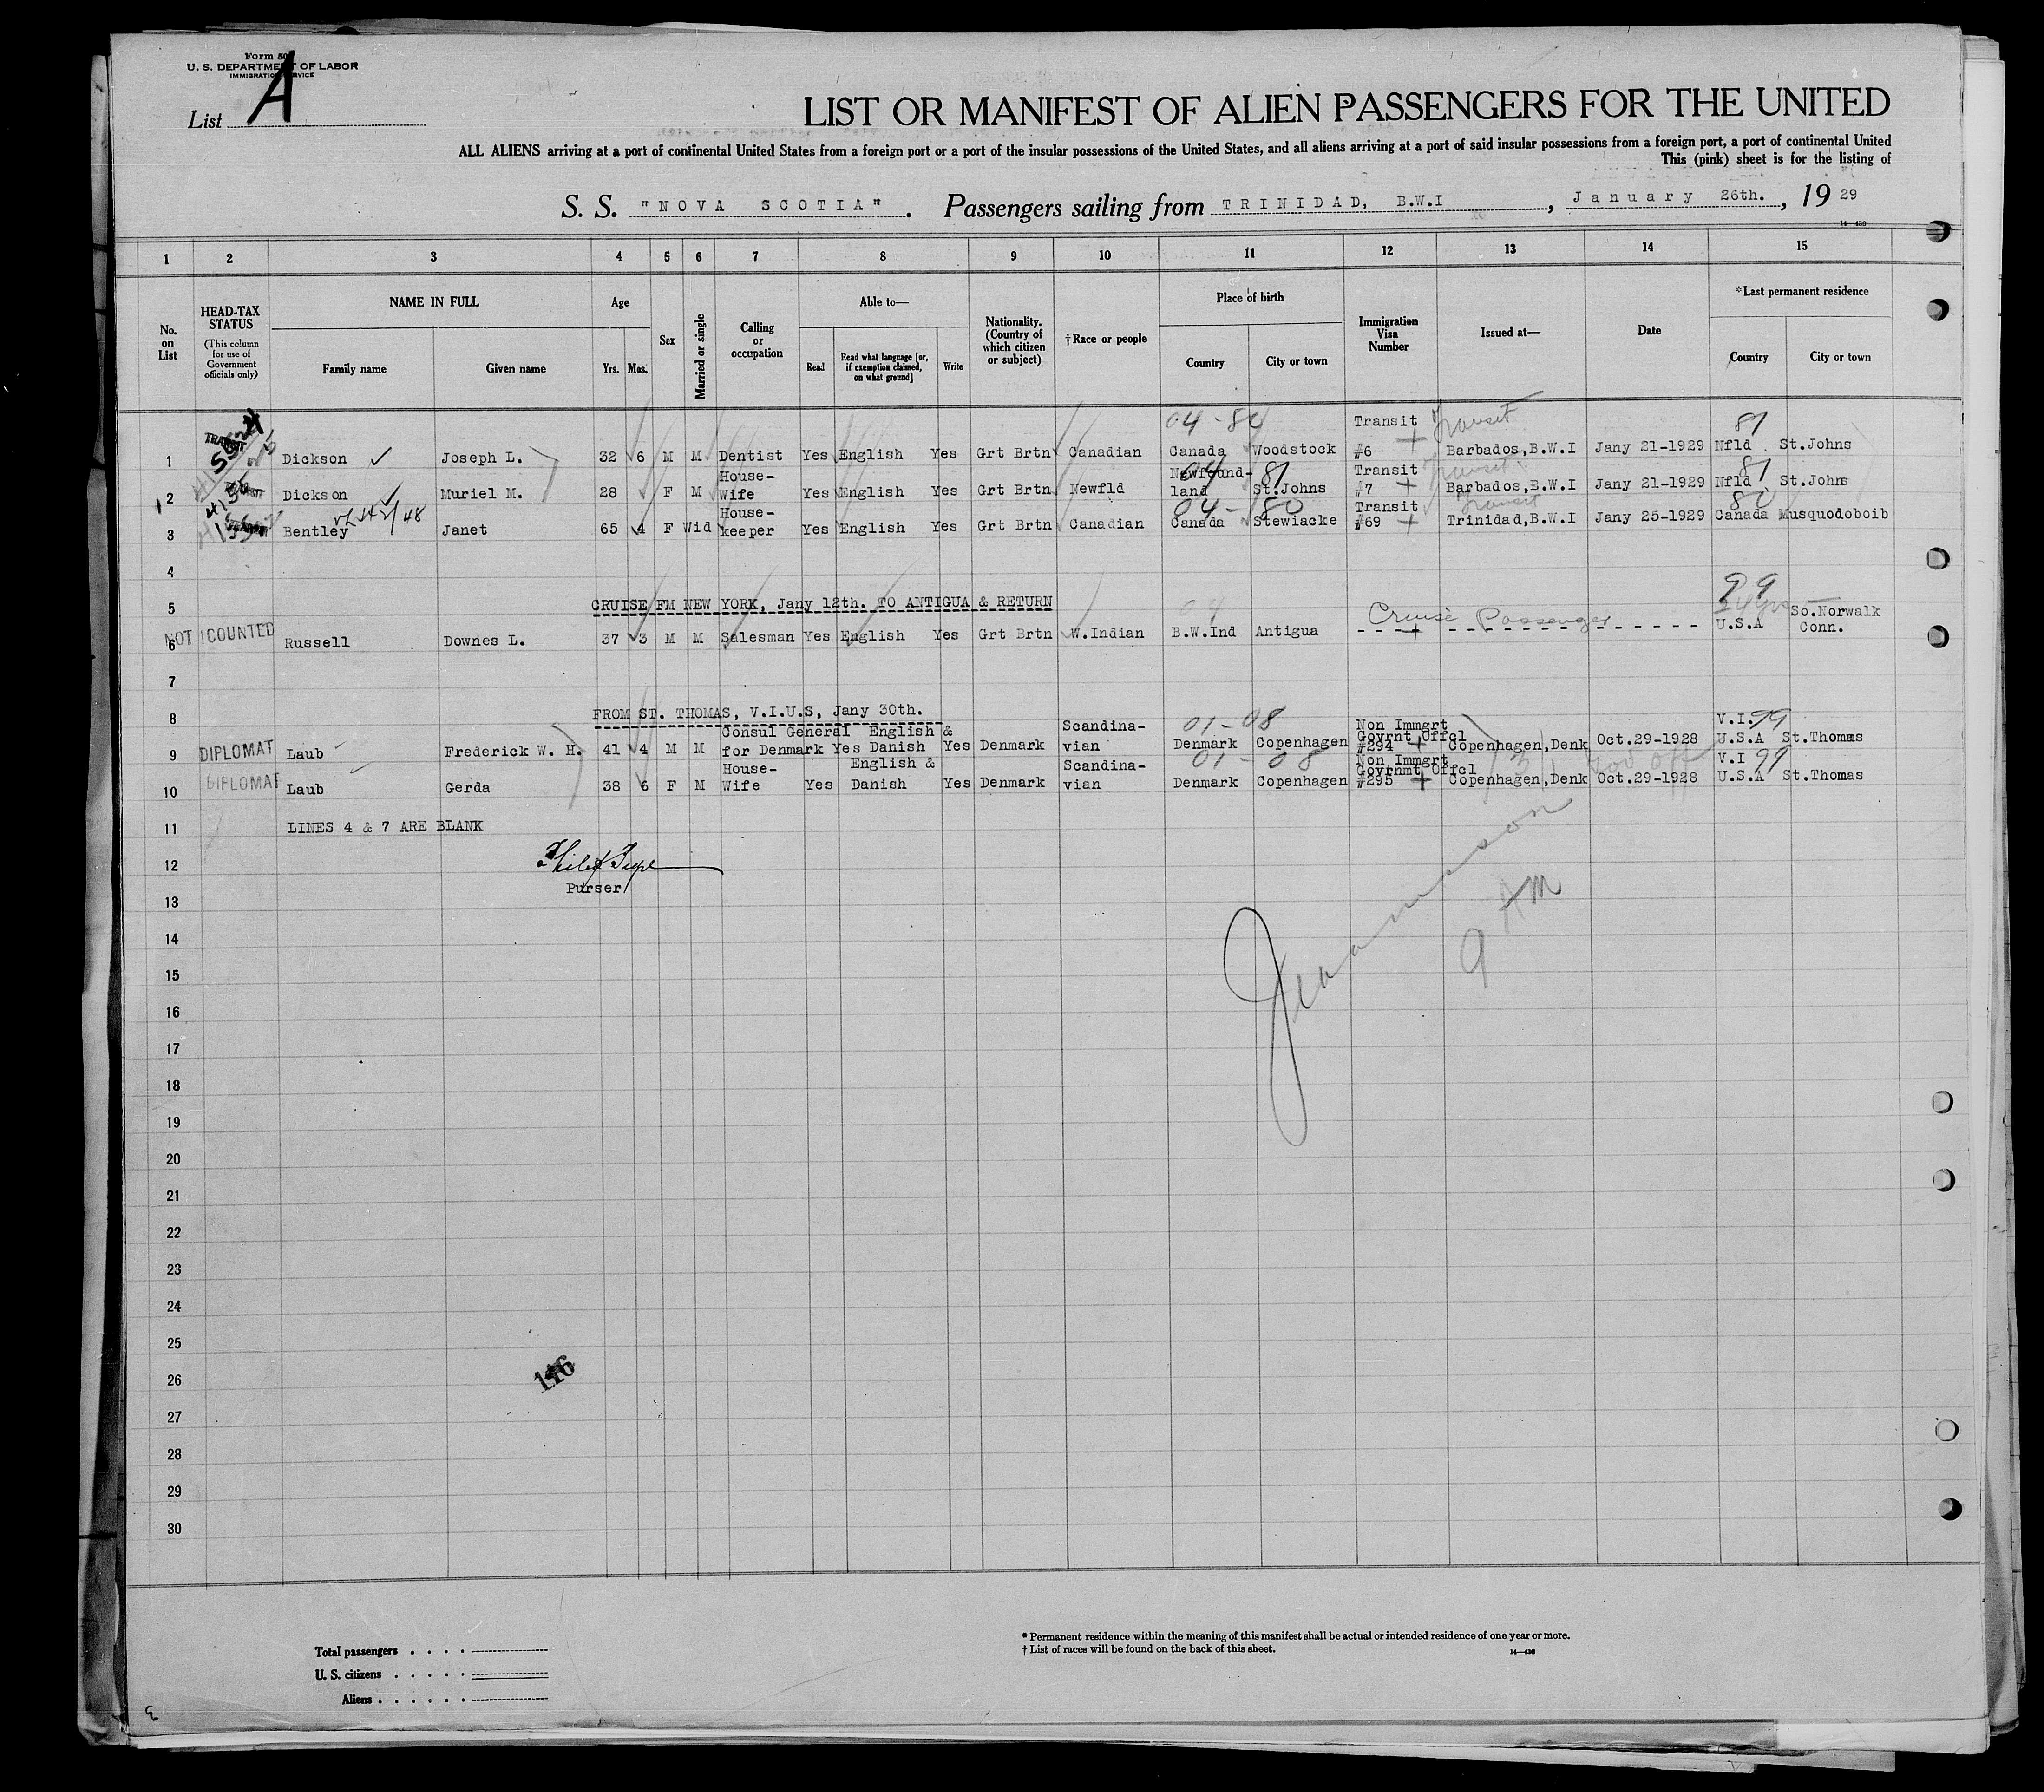 Form 50
U. S. DEPARTMENT OF LABOR
IMMIGRATION SERVICE
List A
LIST OR MANIFEST OF ALIEN PASSENGERS FOR THE UNITED
ALL ALIENS arriving at a port of continental United States from a foreign port or a port of the insular possessions of the United States, and all aliens arriving at a port of said insular possessions from a foreign port, a port of continental United
This (pink) sheet is for the listing of
S. S. "NOVA SCOTIA". Passengers sailing from TRINIDAD, B.W.I, January 26th., 19 29
14-430
1 2 3 4 5 6 7 8 9 10 11 12 13 14 15
No. on List
HEAD-TAX STATUS (This column for use of Government officials only)
NAME IN FULL
Family name Given name
Age
Yrs. Mos.
Sex
Married or single
Calling or occupation
Able to—
Read Read what language [or, if exemption claimed, on what ground] Write
Nationality. (Country of which citizen or subject)
†Race or people
Place of birth
Country City or town
Immigration Visa Number
Issued at—
Date
*Last permanent residence
Country City or town
04-80 Transit Transit 81
1 TRANSIT Dickson Joseph L. 32 6 M M Dentist Yes English Yes Grt Brtn Canadian Canada Woodstock #6 Barbados, B.W.I Jany 21-1929 Nfld St.Johns
House- Newfound- 04 81 Transit Transit 81
2 Dickson Muriel M. 28 F M Wife Yes English Yes Grt Brtn Newfld land St.Johns #7 Barbados, B.W.I Jany 21-1929 Nfld St.Johns
House- 04-80 Transit Transit 80
3 Bentley Janet 65 4 F Wid keeper Yes English Yes Grt Brtn Canadian Canada Stewiacke #69 Trinidad, B.W.I Jany 25-1929 Canada Musquodoboib
4
99
5 CRUISE FM NEW YORK, Jany 12th. TO ANTIGUA & RETURN 04 So.Norwalk
NOT COUNTED Cruise Passenger
6 Russell Downes L. 37 3 M M Salesman Yes English Yes Grt Brtn W.Indian B.W.Ind Antigua U.S.A Conn.
7
8 FROM ST. THOMAS, V.I.U.S, Jany 30th. 01-08 V.I. 99
Consul General English & Scandina- Non Immgrt Govrnt Offcl
9 DIPLOMAT Laub Frederick W. H. 41 4 M M for Denmark Yes Danish Yes Denmark vian Denmark Copenhagen #294 Copenhagen, Denk Oct.29-1928 U.S.A St.Thomas
House- English & Scandina- 01-08 Non Immgrt Govrnmt Offcl V.I 99
10 DIPLOMAT Laub Gerda 38 6 F M Wife Yes Danish Yes Denmark vian Denmark Copenhagen #295 Copenhagen, Denk Oct.29-1928 U.S.A St.Thomas
11 LINES 4 & 7 ARE BLANK
12
Purser
13
9 AM
14
15
16
17
18
19
20
21
22
23
24
25
26
27
28
29
30
Total passengers
U. S. citizens
Aliens
* Permanent residence within the meaning of this manifest shall be actual or intended residence of one year or more.
† List of races will be found on the back of this sheet.
14-430